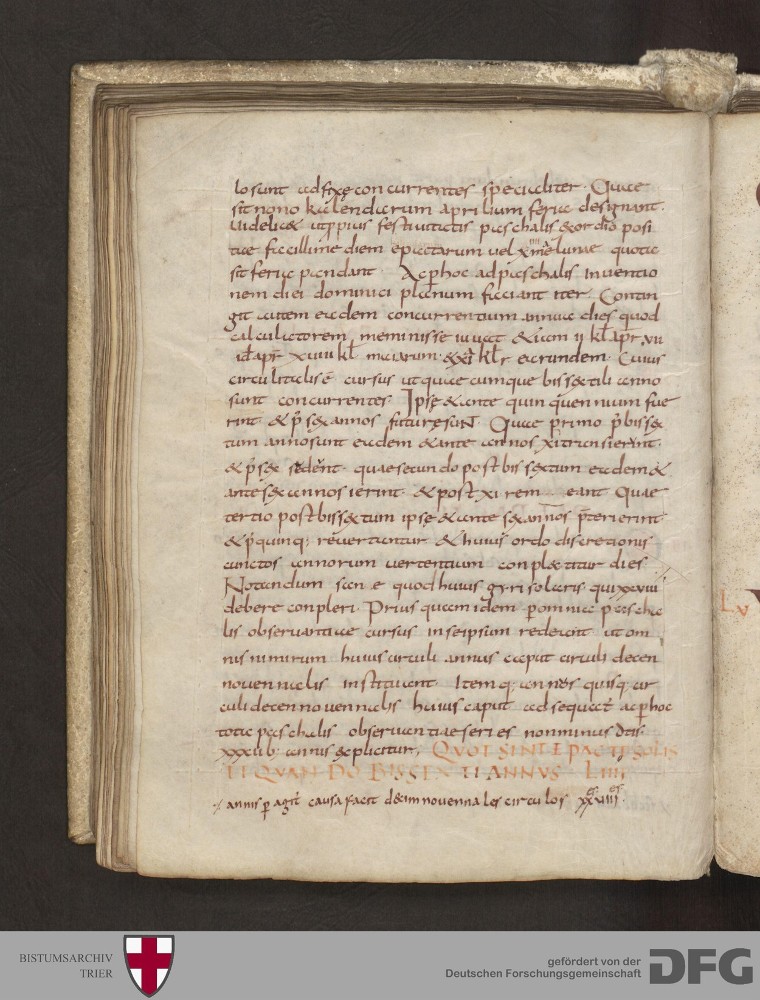 lo sunt adfixę concurrentes specialiter. Quae
sit nono kalendarum aprilium feria designant.
Videlicet ut prius festivitatis paschalis & ordo posi
tae facillime diem epactarum vel xiiii lunae quotae
sit feriae pandant Ac p hoc ad paschalis inventio
nem diei dominici planum faciant iter. Contin
git autem eadem concurrentium annua dies quod
calculatorem meminisse iuvat &iam ii kl apr. vii
id apr xviiii kl maiarum &xi kl earundem. Cuius
circuli talis ē cursus ut quae cumque bissextili anno
sunt concurrentes. Ipsę & ante quinquennium fue
rint & p sex annos futurę sunt. Quae primo p bissex
tum anno sunt eaedem & ante annos xi transierint.
& p sex redent. quae secundo post bissextum eaedem &
ante sex annos ierint & post xi rem eant Quae
tertio post bissextum ipsę & ante sex annos pterierint
& p quinq; revertuntur & huius ordo discretionis
cunctos annorum vertentium conplectitur dies.
Notandum san e quod huius gyri solaris. qui xxviii
debere conpleri. Prius quam idem p omnia pascha
lis observantiae cursus in seipsum redeat ut om
nis nimirum huius circuli annus caput circuli decen
novennalis instituant. Itemq; annos quisq; cir
culi decennovennalis huius caput adsequat ac p hoc
tota paschalis observantiae series non minus dtis
xxxiib; annis explicitur, QUOT SINT EPACTĘ SOLIS
ET QUANDO BISSEXTI ANNUS LIIII
annis p agit causa facit decim novennales circulos xxviii
LV
BISTUMSARCHIV
TRIER
gefördert von der
Deutschen Forschungsgemeinschaft
DFG